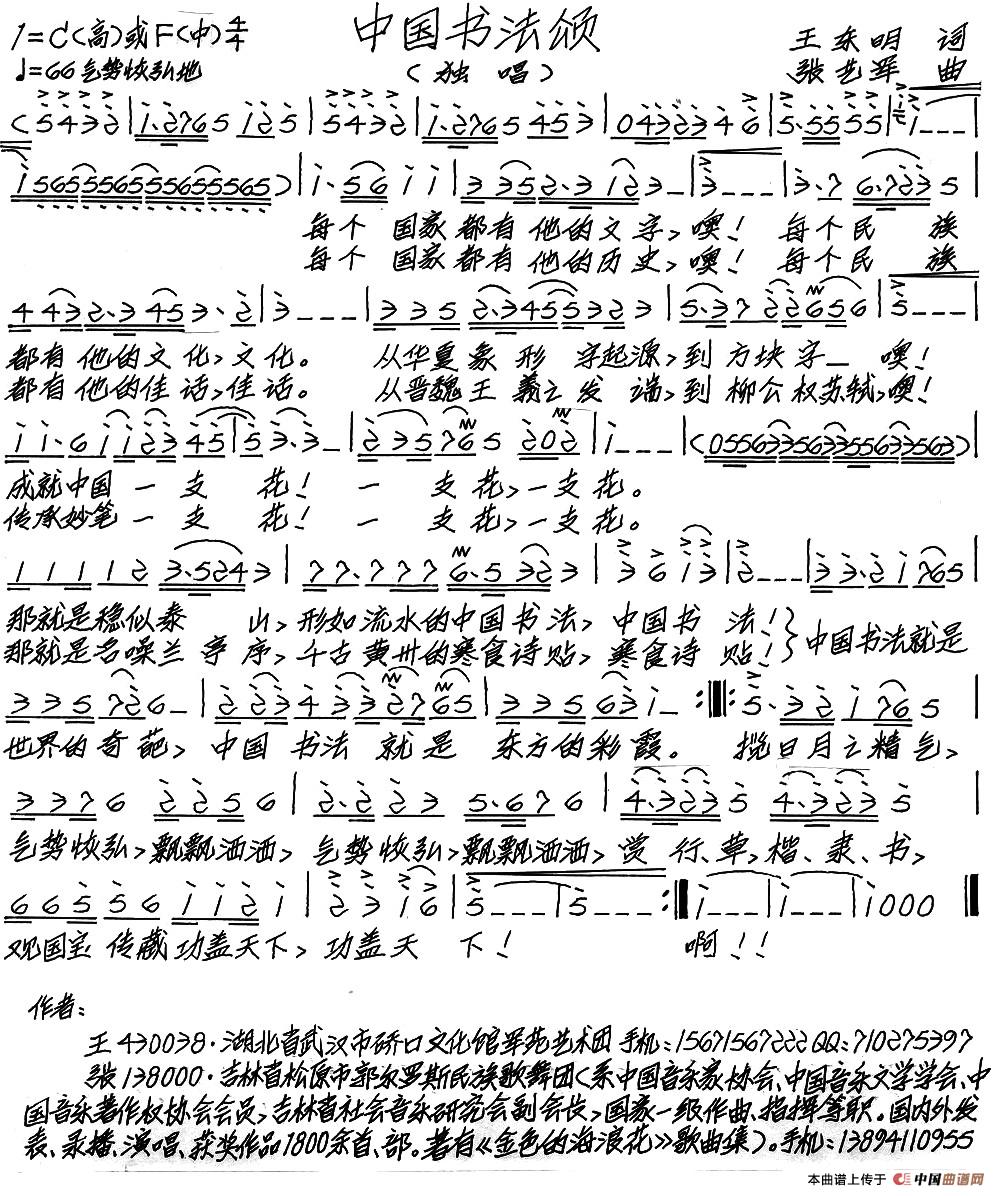 中国书法颂
1=C(高)或F(中)4/4
♩=66 气势恢弘地
(独唱)
王东明 词
张艺军 曲
(5432|1·2765 125|5432|1·2765 453|0432346|5·5555|1---|
1565556555655565)|1·5611|3352·3123-|3---|3·76·7235|
每个国家都有他的文字,噢!每个民族
每个国家都有他的历史,噢!每个民族
4432·3453·2|3---|3352·3455323|5·3722656|5---|
都有他的文化,文化。从华夏象形字起源,到方块字—噢!
都有他的佳话,佳话。从晋魏王羲之发端,到柳公权苏轼,噢!
11·6112345|53·3-|235765202|1---|(0556335633556335563)|
成就中国一支花!一支花,一支花。
传承妙笔一支花!一支花,一支花。
111123·5243|77·7776·5323|3613|2---|33·21765|
那就是稳似泰山,形如流水的中国书法,中国书法!}中国书法就是
那就是名噪兰亭序,千古黄州的寒食诗贴,寒食诗贴!
335726-|2234332765|3355631-:‖:5·321765|
世界的奇葩,中国书法就是东方的彩霞。揽日月之精气,
33762256|2·2235·676|4·32354·3235|
气势恢弘,飘飘洒洒,气势恢弘,飘飘洒洒,赏行、草,楷、隶、书,
665561121|2316|5---|5---:‖1---|1---|1000‖
观国宝传藏功盖天下,功盖天下!啊!!
作者:
王430038·湖北省武汉市硚口文化馆军苑艺术团 手机:15671567222QQ:710275397
张138000·吉林省松原市郭尔罗斯民族歌舞团(系中国音乐家协会、中国音乐文学学会、中
国音乐著作权协会会员,吉林省社会音乐研究会副会长,国家一级作曲、指挥等职。国内外发
表、录播、演唱、获奖作品1800余首、部。著有《金色的海浪花》歌曲集)。手机:13894110955
本曲谱上传于 中国曲谱网